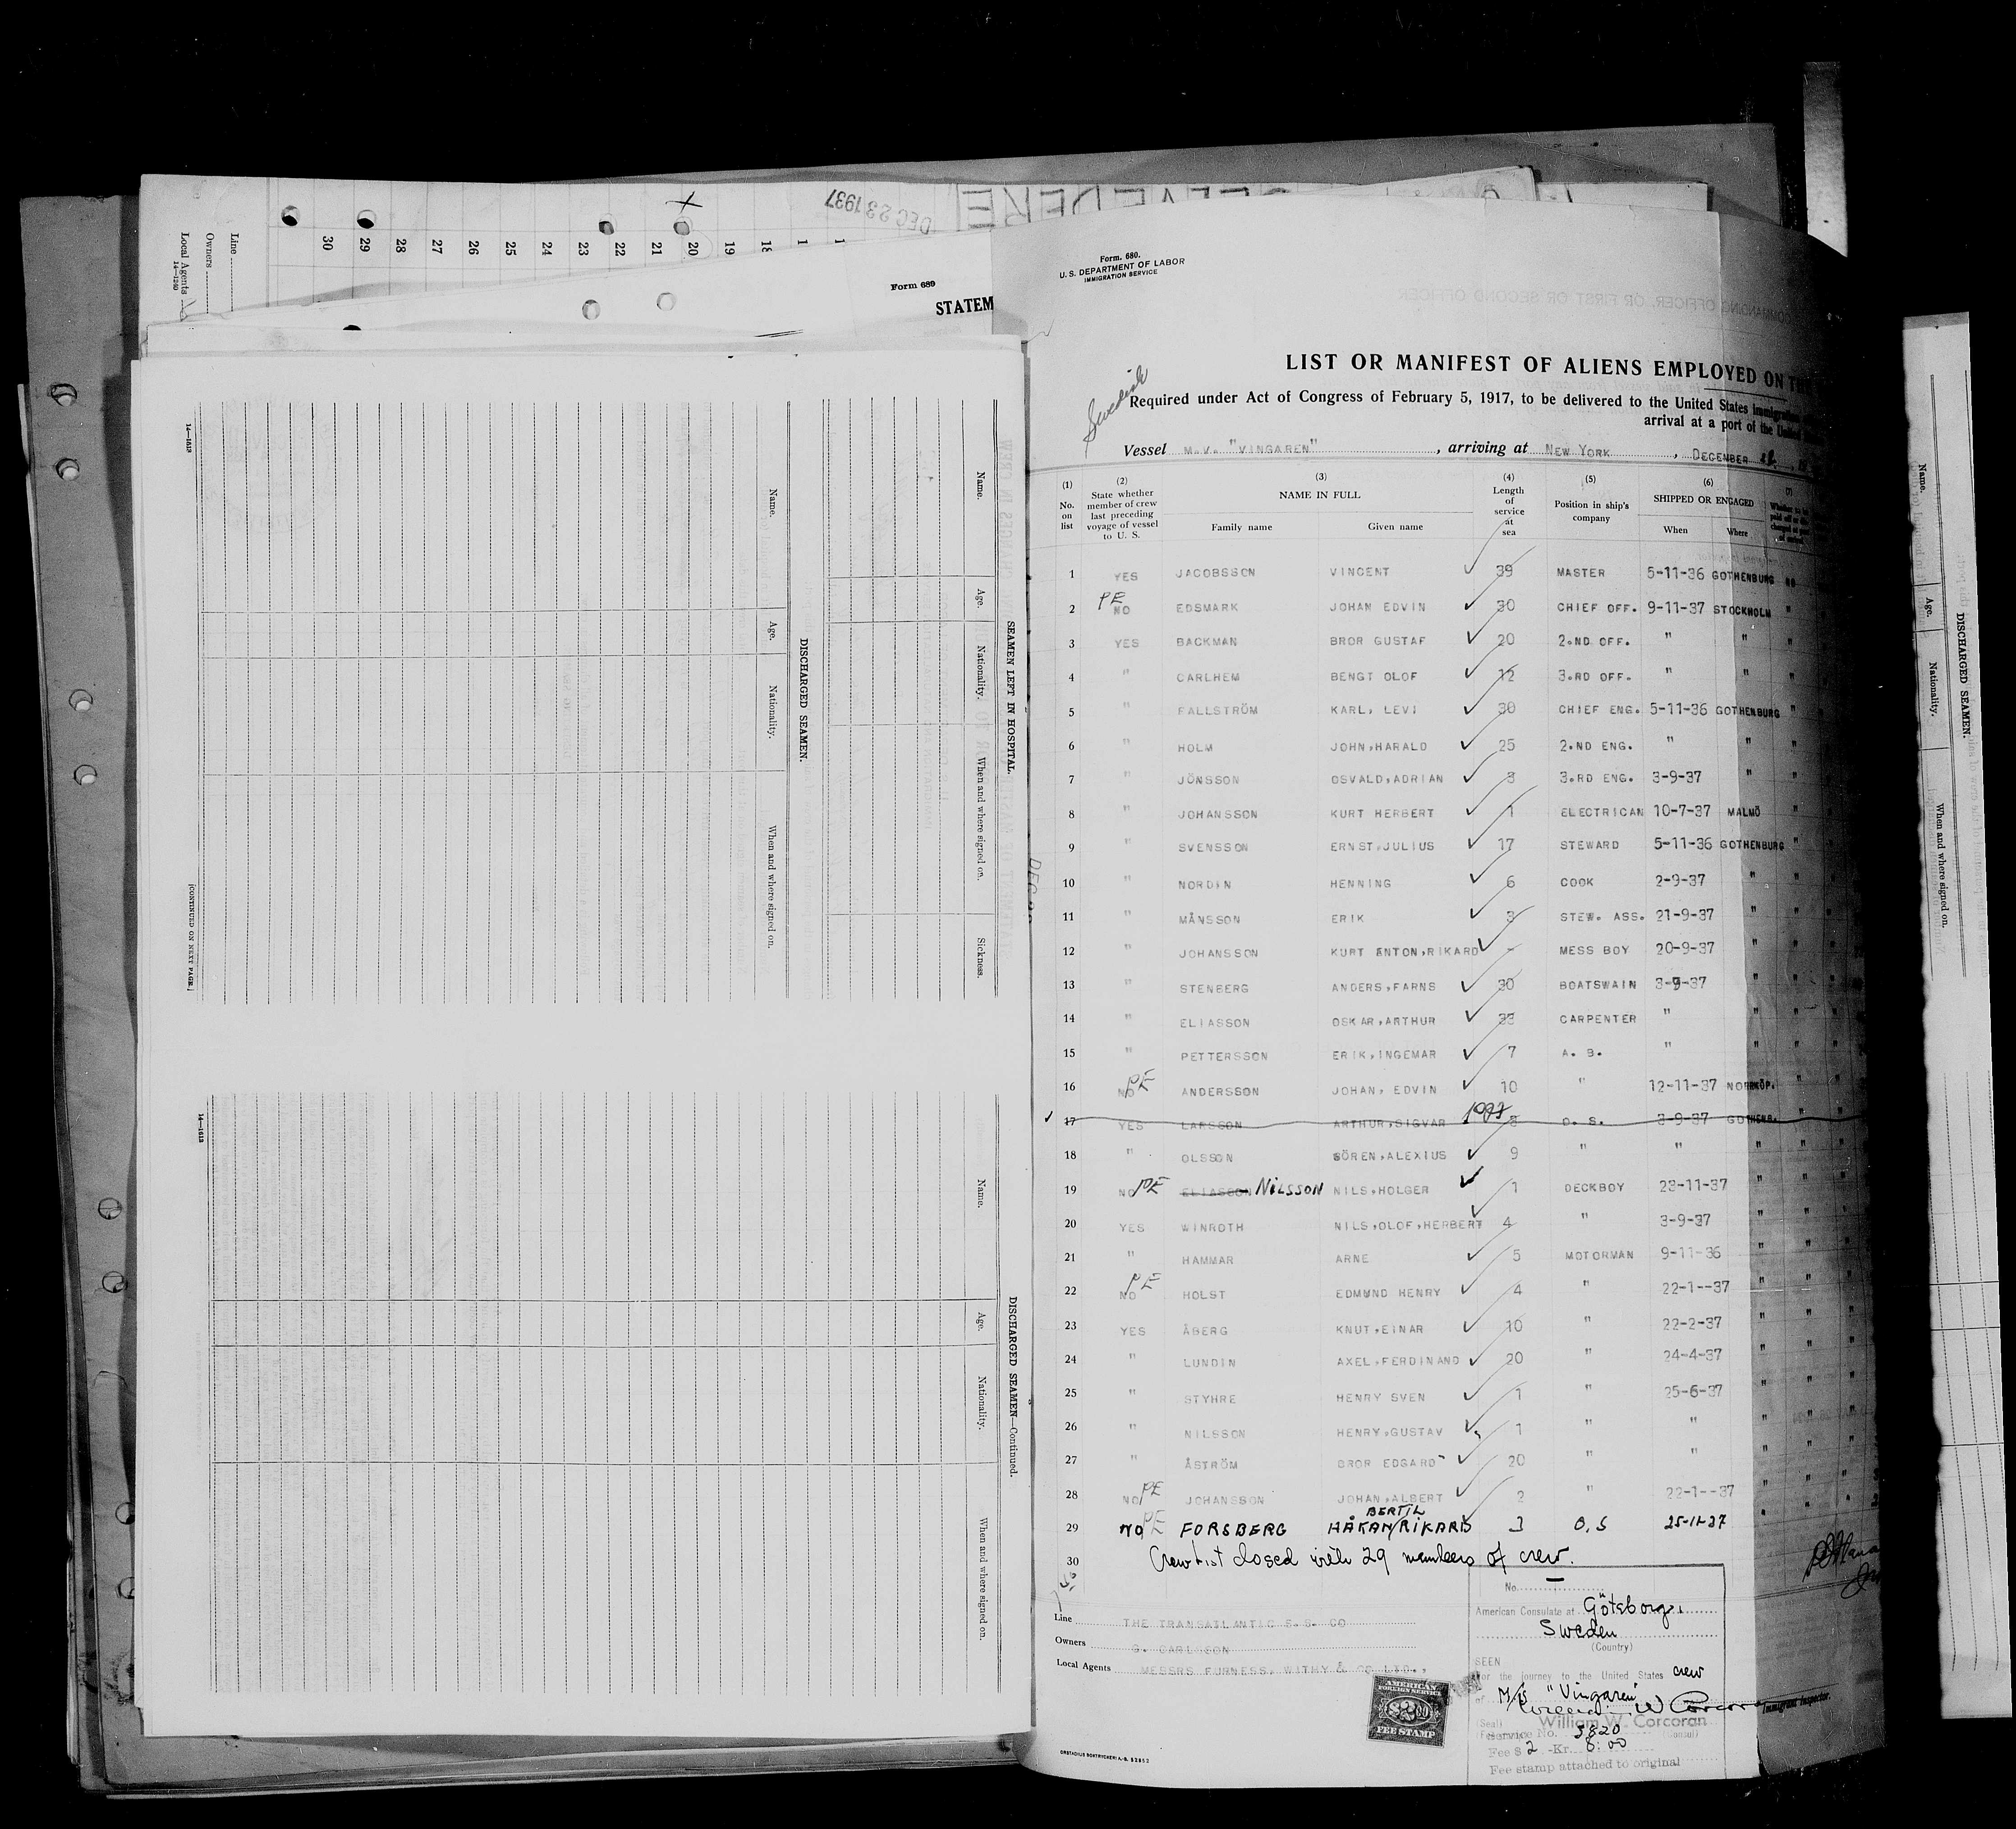 DEC 23 1937
30 29 28 27 26 25 24 23 22 21 20 19 18
Line
Owners
Local Agents
14—1240
Form 689
STATEM
14—1613
Name. Age. Nationality. When and where signed on. Sickness.
SEAMEN LEFT IN HOSPITAL.
DISCHARGED SEAMEN.
Name. Age. Nationality. When and where signed on.
[CONTINUED ON NEXT PAGE.]
14—1613
DISCHARGED SEAMEN—Continued.
Name. Age. Nationality. When and where signed on.
Form. 680.
U. S. DEPARTMENT OF LABOR
IMMIGRATION SERVICE
Swedish
LIST OR MANIFEST OF ALIENS EMPLOYED ON TH
Required under Act of Congress of February 5, 1917, to be delivered to the United States
arrival at a port of the United
Vessel M.V. "VINGAREN", arriving at NEW YORK, DECEMBER
(1) No. on list
(2) State whether member of crew last preceding voyage of vessel to U. S.
(3) NAME IN FULL
Family name Given name
(4) Length of service at sea
(5) Position in ship's company
(6) SHIPPED OR ENGAGED
When Where
(7)
1 YES JACOBSSON VINCENT 39 MASTER 5-11-36 GOTHENBURG NO
2 PE NO EDSMARK JOHAN EDVIN 30 CHIEF OFF. 9-11-37 STOCKHOLM "
3 YES BACKMAN BROR GUSTAF 20 2.ND OFF. " " "
4 " CARLHEM BENGT OLOF 12 3.RD OFF. " " "
5 " FALLSTRÖM KARL, LEVI 30 CHIEF ENG. 5-11-36 GOTHENBURG "
6 " HOLM JOHN,HARALD 25 2.ND ENG. " " "
7 " JÖNSSON OSVALD,ADRIAN 3 3.RD ENG. 3-9-37 " "
8 " JOHANSSON KURT HERBERT 1 ELECTRICAN 10-7-37 MALMÖ "
9 " SVENSSON ERNST,JULIUS 17 STEWARD 5-11-36 GOTHENBURG "
10 " NORDIN HENNING 6 COOK 2-9-37 " "
11 " MÅNSSON ERIK 3 STEW. ASS. 21-9-37 " "
12 " JOHANSSON KURT ANTON,RIKARD - MESS BOY 20-9-37 " "
13 " STENBERG ANDERS,FARNS 30 BOATSWAIN 3-9-37 " "
14 " ELIASSON OSKAR,ARTHUR 33 CARPENTER " " "
15 " PETTERSSON ERIK,INGEMAR 7 A. B. " " "
16 NO PE ANDERSSON JOHAN, EDVIN 10 " 12-11-37 NORRKÖP. "
17 YES LARSSON ARTHUR,SIGVAR 8 O. S. 3-9-37 GOTHENB. "
18 " OLSSON SÖREN,ALEXIUS 9 " " " "
19 NO PE ELIASSON NILSSON NILS,HOLGER 1 DECKBOY 23-11-37 "
20 YES WINROTH NILS,OLOF,HERBERT 4 " 3-9-37 "
21 " HAMMAR ARNE 5 MOTORMAN 9-11-36 "
22 PE NO HOLST EDMUND HENRY 4 " 22-1--37 "
23 YES ÅBERG KNUT,EINAR 10 " 22-2-37 "
24 " LUNDIN AXEL,FERDINAND 20 " 24-4-37 "
25 " STYHRE HENRY SVEN 1 " 25-6-37 "
26 " NILSSON HENRY,GUSTAV 1 " " "
27 " ÅSTRÖM BROR EDGARD 20 " " "
28 NO PE JOHANSSON JOHAN,ALBERT 2 " 22-1--37 "
29 NO PE FORSBERG HÅKAN/RIKARD BERTIL 3 O.S 25-11-37
30 Crew list closed with 29 members of crew.
Line THE TRANSATLANTIC S.S. CO
Owners G. CARLSSON
Local Agents MESSRS FURNESS, WITHY & CO LTD.,
AMERICAN
FOREIGN SERVICE
FEE STAMP
No. —
American Consulate at Göteborg,
Sweden
(Country)
SEEN
For the journey to the United States crew
of M/S "Vingaren"
William W. Corcoran
(Seal)
Service No. 5820
Fee $ 2 -Kr. 8:00
Fee stamp attached to original
Immigrant Inspector.
ORSTADIUS BOKTRYCKERI A.-B. 52952
DISCHARGED SEAMEN.
Name. Age. Nationality. When and where signed on.